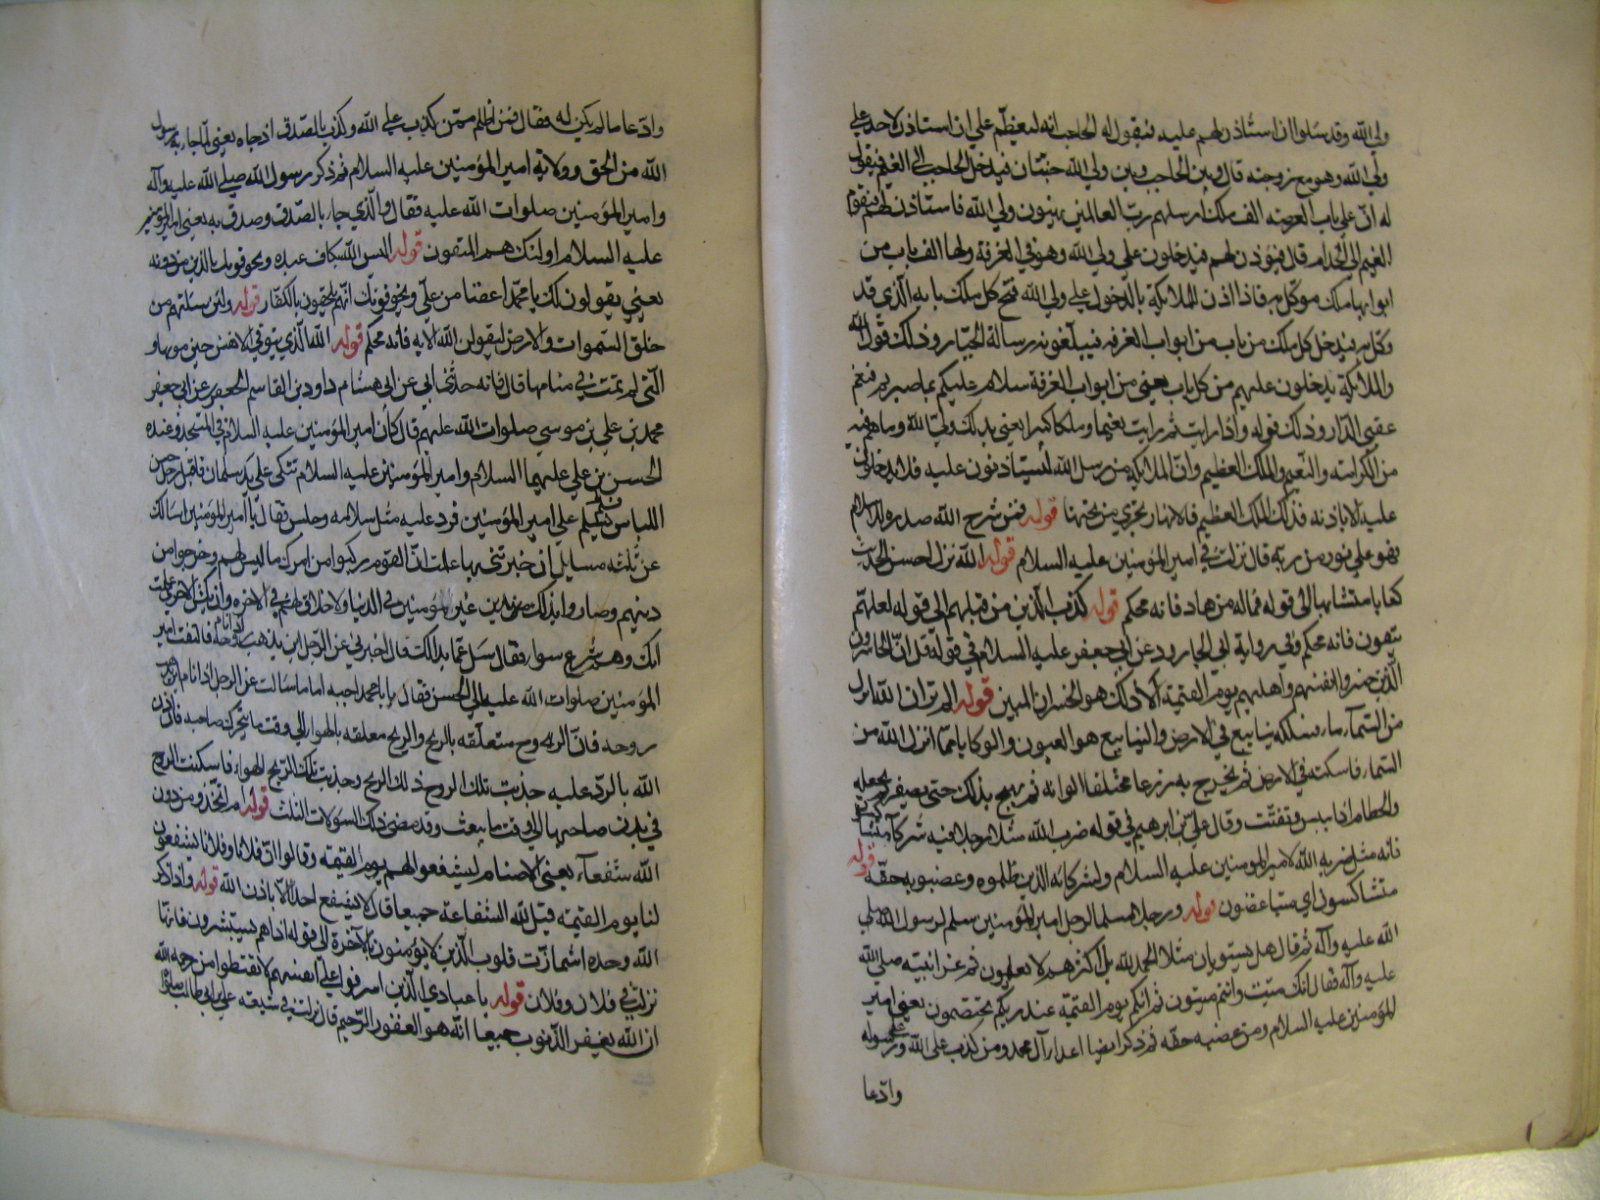 ولي الله وقد سالوا ان استاذن لهم عليه فيقول له الحاجب انه ليعظم علي ان استاذن لاحد علي
ولي الله وهو مع زوجته قال وبين الحاجب وبين ولي الله جنتان فيدخل الحاجب الى القيم فيقول
له ان على باب العرصه الف ملك ارسلهم رب العالمين يهنون ولي الله فاستاذن لهم فيقوم
القيم الى الخدام قال فيؤذن لهم فيدخلون على ولي الله وهو في الغرفة ولها الف باب من
ابوابها ملك موكل به فاذا اذن للملائكة بالدخول علي ولي الله فتح كل ملك بابه الذي قد
وكل به فيدخل كل ملك من باب من ابواب الغرفه فيبلغونه رسالة الجبار وذلك قول الله
والملائكة يدخلون عليهم من كل باب يعني من ابواب الغرفة سلام عليكم بما صبرتم فنعم
عقبى الدار وذلك قوله واذا رايت ثم رايت نعيما وملكا كبيرا يعني بذلك ولي الله وما هم فيه
من الكرامة والنعيم والملك العظيم وان الملائكة من رسل الله ليستاذنون عليه فلا يدخلون
عليه الا باذنه فذلك الملك العظيم فالانهار تجري من تحتها قوله فمن شرح الله صدره للاسلام
فهو على نور من ربه قال نزلت في امير المؤمنين عليه السلام قوله الله نزل احسن الحديث
كتابا متشابها الى قوله فما له من هاد فانه محكم قوله كذب الذين من قبلهم الى قوله لعلهم
يتقون فانه محكم وفي رواية ابي الجارود عن ابي جعفر عليه السلام في قوله قل ان الخاسرون
الذين خسروا انفسهم واهليهم يوم القيمة الا ذلك هو الخسران المبين قوله الم تر ان الله انزل
من السماء ماء فسلكه ينابيع في الارض والينابيع هو العيون والوكايا مما انزل الله من
السماء فاسكنه في الارض ثم يخرج به زرعا مختلفا الوانه ثم يهيج بذلك حتى يصفر ثم يجعله
والحطام اذا يبس وتفتت وقال علي بن ابرهيم في قوله ضرب الله مثلا رجلا فيه شركآء متشاكسون
فانه مثل ضربه الله لامير المومنين عليه السلام ولشركائه الذين ظلموه وغصبوه حقه وقوله
متشاكسون اي متباغضون قوله ورجلا سلما لرجل امير المؤمنين سلم لرسول الله صلي
الله عليه وآله ثم قال هل يستويان مثلا الحمد لله بل اكثرهم لا يعلمون ثم عزا نبيه صلي الله
عليه وآله فقال انك ميت وانهم ميتون ثم انكم يوم القيمة عند ربكم تختصمون يعني امير
المؤمنين عليه السلام ومن غصبه حقه ثم ذكر ايضا اعداء آل محمد ومن كذب على الله وعلي رسوله
وادعا
وادعا ما لم يكن له فقال فمن اظلم ممن كذب على الله وكذب بالصدق اذ جاءه يعني لما جاء به رسول
الله من الحق وولاية امير المؤمنين عليه السلام ثم ذكر رسول الله صلي الله عليه وآله
وامير المؤمنين صلوات الله عليه فقال والذي جاء بالصدق وصدق به يعني امير المؤمنين
عليه السلام اولئك هم المتقون قوله اليس الله بكاف عبده ويخوفونك بالذين من دونه
يعني يقولون لك يا محمد اعفنا من علي ويخوفونك انهم يلحقون بالكفار قوله ولئن سئلتهم من
خلق السموات والارض ليقولن الله الايه فانه محكم قوله الله الذي يتوفى الانفس حين موتها و
التي لم تمت في منامها قال فانه حدثني ابي عن ابي هشام داود بن القاسم الجعفري عن ابي جعفر
محمد بن علي بن موسي صلوات الله عليهم قال كان امير المؤمنين عليه السلام في المسجد وعنده
الحسن بن علي عليهما السلام وامير المؤمنين عليه السلام متكى على يد سلمان فاقبل رجل حسن
اللباس فسلم على امير المؤمنين فرد عليه مثل سلامه وجلس فقال يا امير المؤمنين اسالك
عن ثلثه مسايل ان خبرتني بها علمت ان القوم ركبوا من امرك ما ليس لهم وخرجوا من
دينهم وصاروا بذلك غير مؤمنين في الدنيا ولا خلاق لهم في الاخره وان يكن الاخرى علمت
انك وهم شرع سواء فقال سل عما بدا لك قال اخبرني عن الرجل اذا نام اين يذهب روحه فالتفت امير
المؤمنين صلوات الله عليه الى الحسن فقال يا با محمد اجبه اما ما سالت عن الرجل اذا نام اين يذهب
روحه فان الروح متعلقه بالريح والريح معلقه بالهوا الى وقت ما يتحرك صاحبه فان اذن
الله بالرد عليه جذبت تلك الروح ذلك الريح وجذبت تلك الريح الهواء فاسكنت الروح
في بدن صاحبها الى وقت ما يبعث وقد مضى ذكر السؤالات الثلث قوله ام اتخذوا من دون
الله شفعآء يعني الاصنام ليشفعوا لهم يوم القيمة وقالوا ان فلانا وفلانا يشفعون
لنا يوم القيمه قل لله الشفاعة جميعا قال لا يشفع احد الا باذن الله قوله واذا ذكر
الله وحده اشمازت قلوب الذين لا يؤمنون بالآخرة الى قوله اذا هم يستبشرون فانها
نزلت في فلان وفلان قوله يا عبادي الذين اسرفوا علي انفسهم لا تقنطوا من رحمة الله
ان الله يغفر الذنوب جميعا انه هو الغفور الرحيم قال نزلت في شيعه علي بن ابي طالب